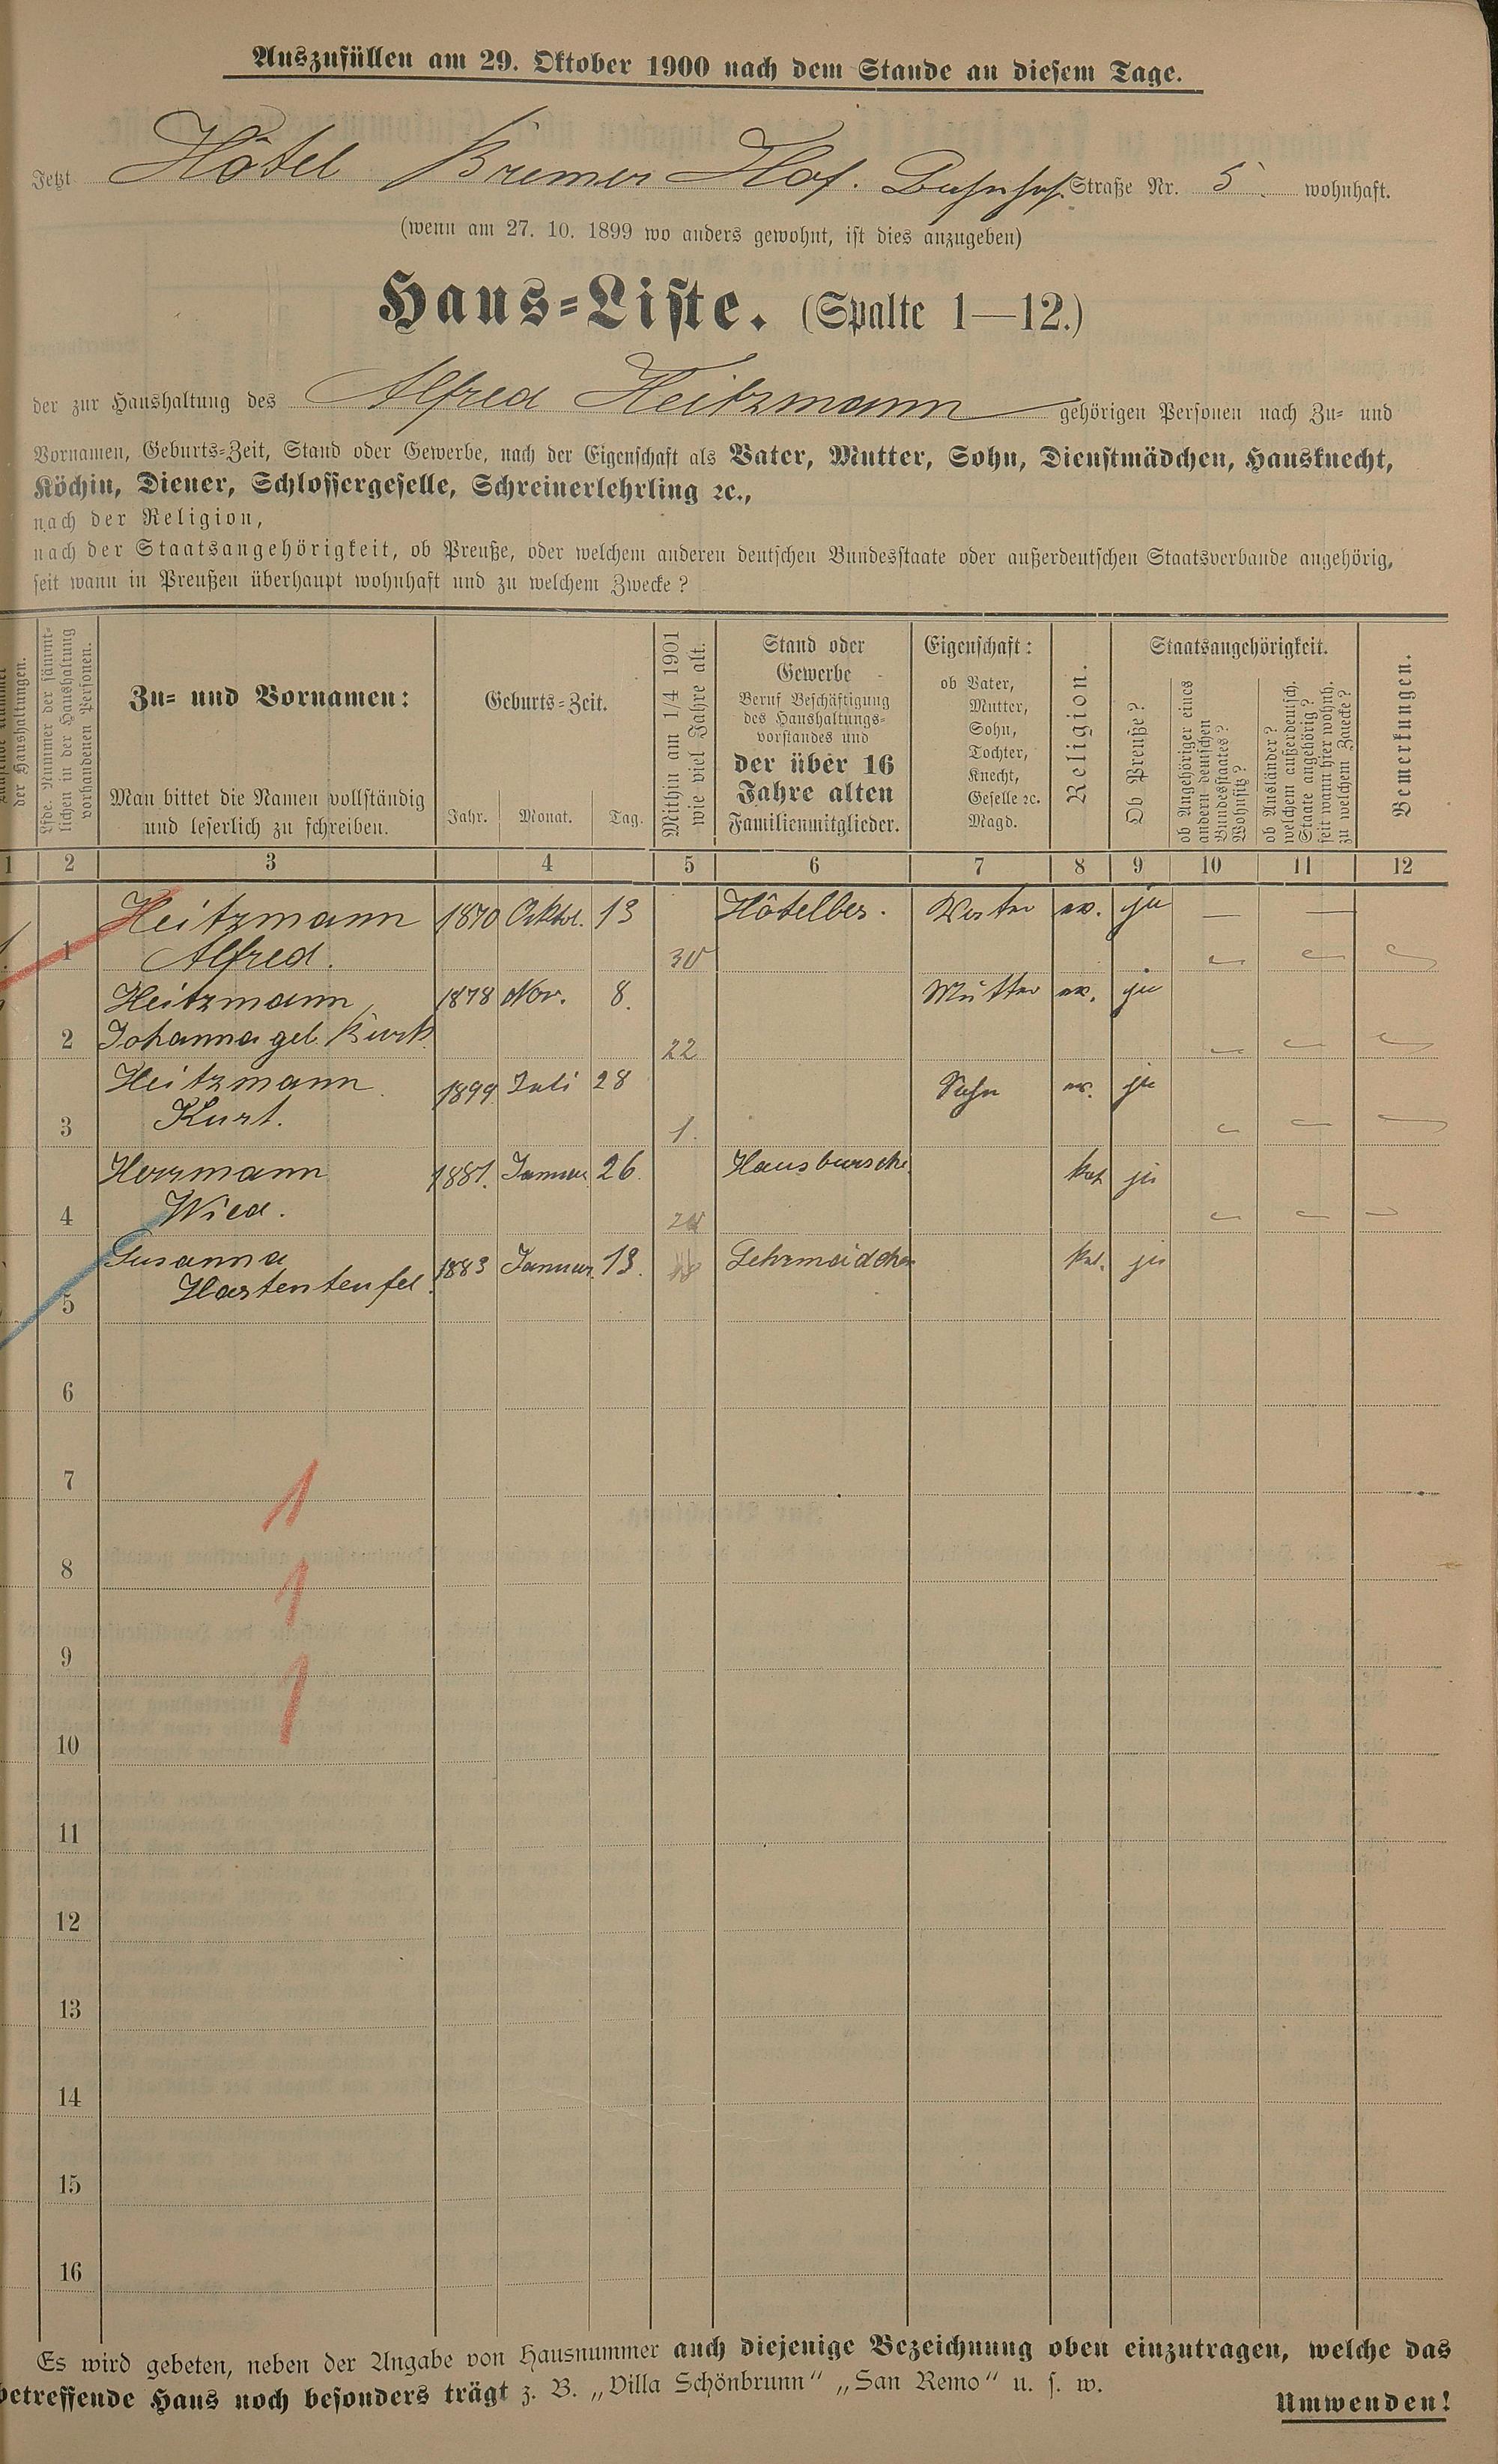 Auszufüllen am 29. Oktober 1900 nach dem Stande an diesem Tage.
Jetzt Hôtel Bremer Hof. Bahnhof Straße Nr. 5. wohnhaft.
(wenn am 27. 10. 1899 wo anders gewohnt, ist dies anzugeben)
Haus-Liste. (Spalte 1—12.)
der zur Haushaltung des Alfred Heitzmann gehörigen Personen nach Zu- und
Vornamen, Geburts-Zeit, Stand oder Gewerbe, nach der Eigenschaft als Vater, Mutter, Sohn, Dienstmädchen, Hausknecht,
Köchin, Diener, Schlossergeselle, Schreinerlehrling ꝛc.,
nach der Religion,
nach der Staatsangehörigkeit, ob Preuße, oder welchem anderen deutschen Bundesstaate oder außerdeutschen Staatsverbande angehörig,
seit wann in Preußen überhaupt wohnhaft und zu welchem Zwecke?
der Haushaltungen.
Lfde. Nummer der sämmt-
lichen in der Haushaltung
vorhandenen Personen.
Zu- und Vornamen:
Man bittet die Namen vollständig
und leserlich zu schreiben.
Geburts-Zeit.
Jahr. Monat. Tag.
Mithin am 1/4 1901
wie viel Jahre alt.
Stand oder
Gewerbe
Beruf Beschäftigung
des Haushaltungs-
vorstandes und
der über 16
Jahre alten
Familienmitglieder.
Eigenschaft:
ob Vater,
Mutter,
Sohn,
Tochter,
Knecht,
Geselle ꝛc.
Magd.
Religion.
Staatsangehörigkeit.
Ob Preuße?
ob Angehöriger eines
andern deutschen
Bundesstaates?
Wohnsitz?
ob Ausländer?
welchem außerdeutsch.
Staate angehörig?
seit wann hier wohnh.
zu welchem Zwecke?
Bemerkungen.
1 2 3 4 5 6 7 8 9 10 11 12
Heitzmann 1870 Oktbr. 13 Hôtelbes. Vater ev. ja — —
1 Alfred. 30
Heitzmann, 1878 Nov. 8. Mutter ev. ja
2 Johanna geb. 22
Heitzmann 1899 Juli 28 Sohn ev. ja
3 Kurt. 1.
Herrmann 1881. Januar 26. Hausbursche kat ja
4 Wied. 20
Susanna 1883 Januar. 13. 18 Lehrmädchen kat. ja
5 Hastenteufel
6
7
1
8
1
9
1
10
11
12
13
14
15
16
Es wird gebeten, neben der Angabe von Hausnummer auch diejenige Bezeichnung oben einzutragen, welche das
betreffende Haus noch besonders trägt z. B. „Villa Schönbrunn“ „San Remo“ u. s. w.
Umwenden!